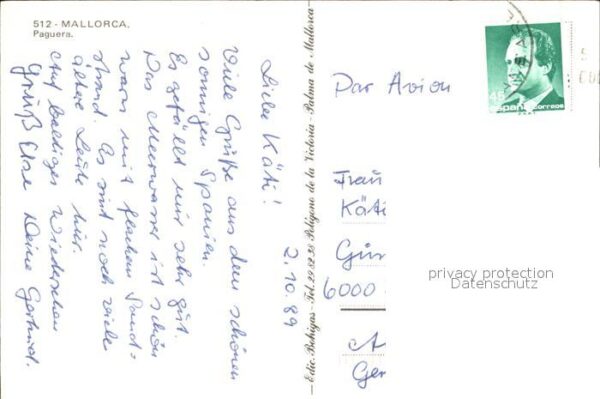 512 - MALLORCA.
Paguera.
2.10.89
Liebe Käti!
Viele Grüße aus dem schönen
sonnigen Spanien.
Es gefällt mir sehr gut.
Das Meerwasser ist schön
warm mit flachem Sand-
strand. Es sind noch viele
ältere Leute hier.
Auf baldiges Wiedersehen
Grüß Else Deine Gertrud.
Edic. Bohigas - Tel. Polígono de la Victoria - Palma de Mallorca
Par Avion
45
españa correos
Frau
Käti
6000
privacy protection
Datenschutz